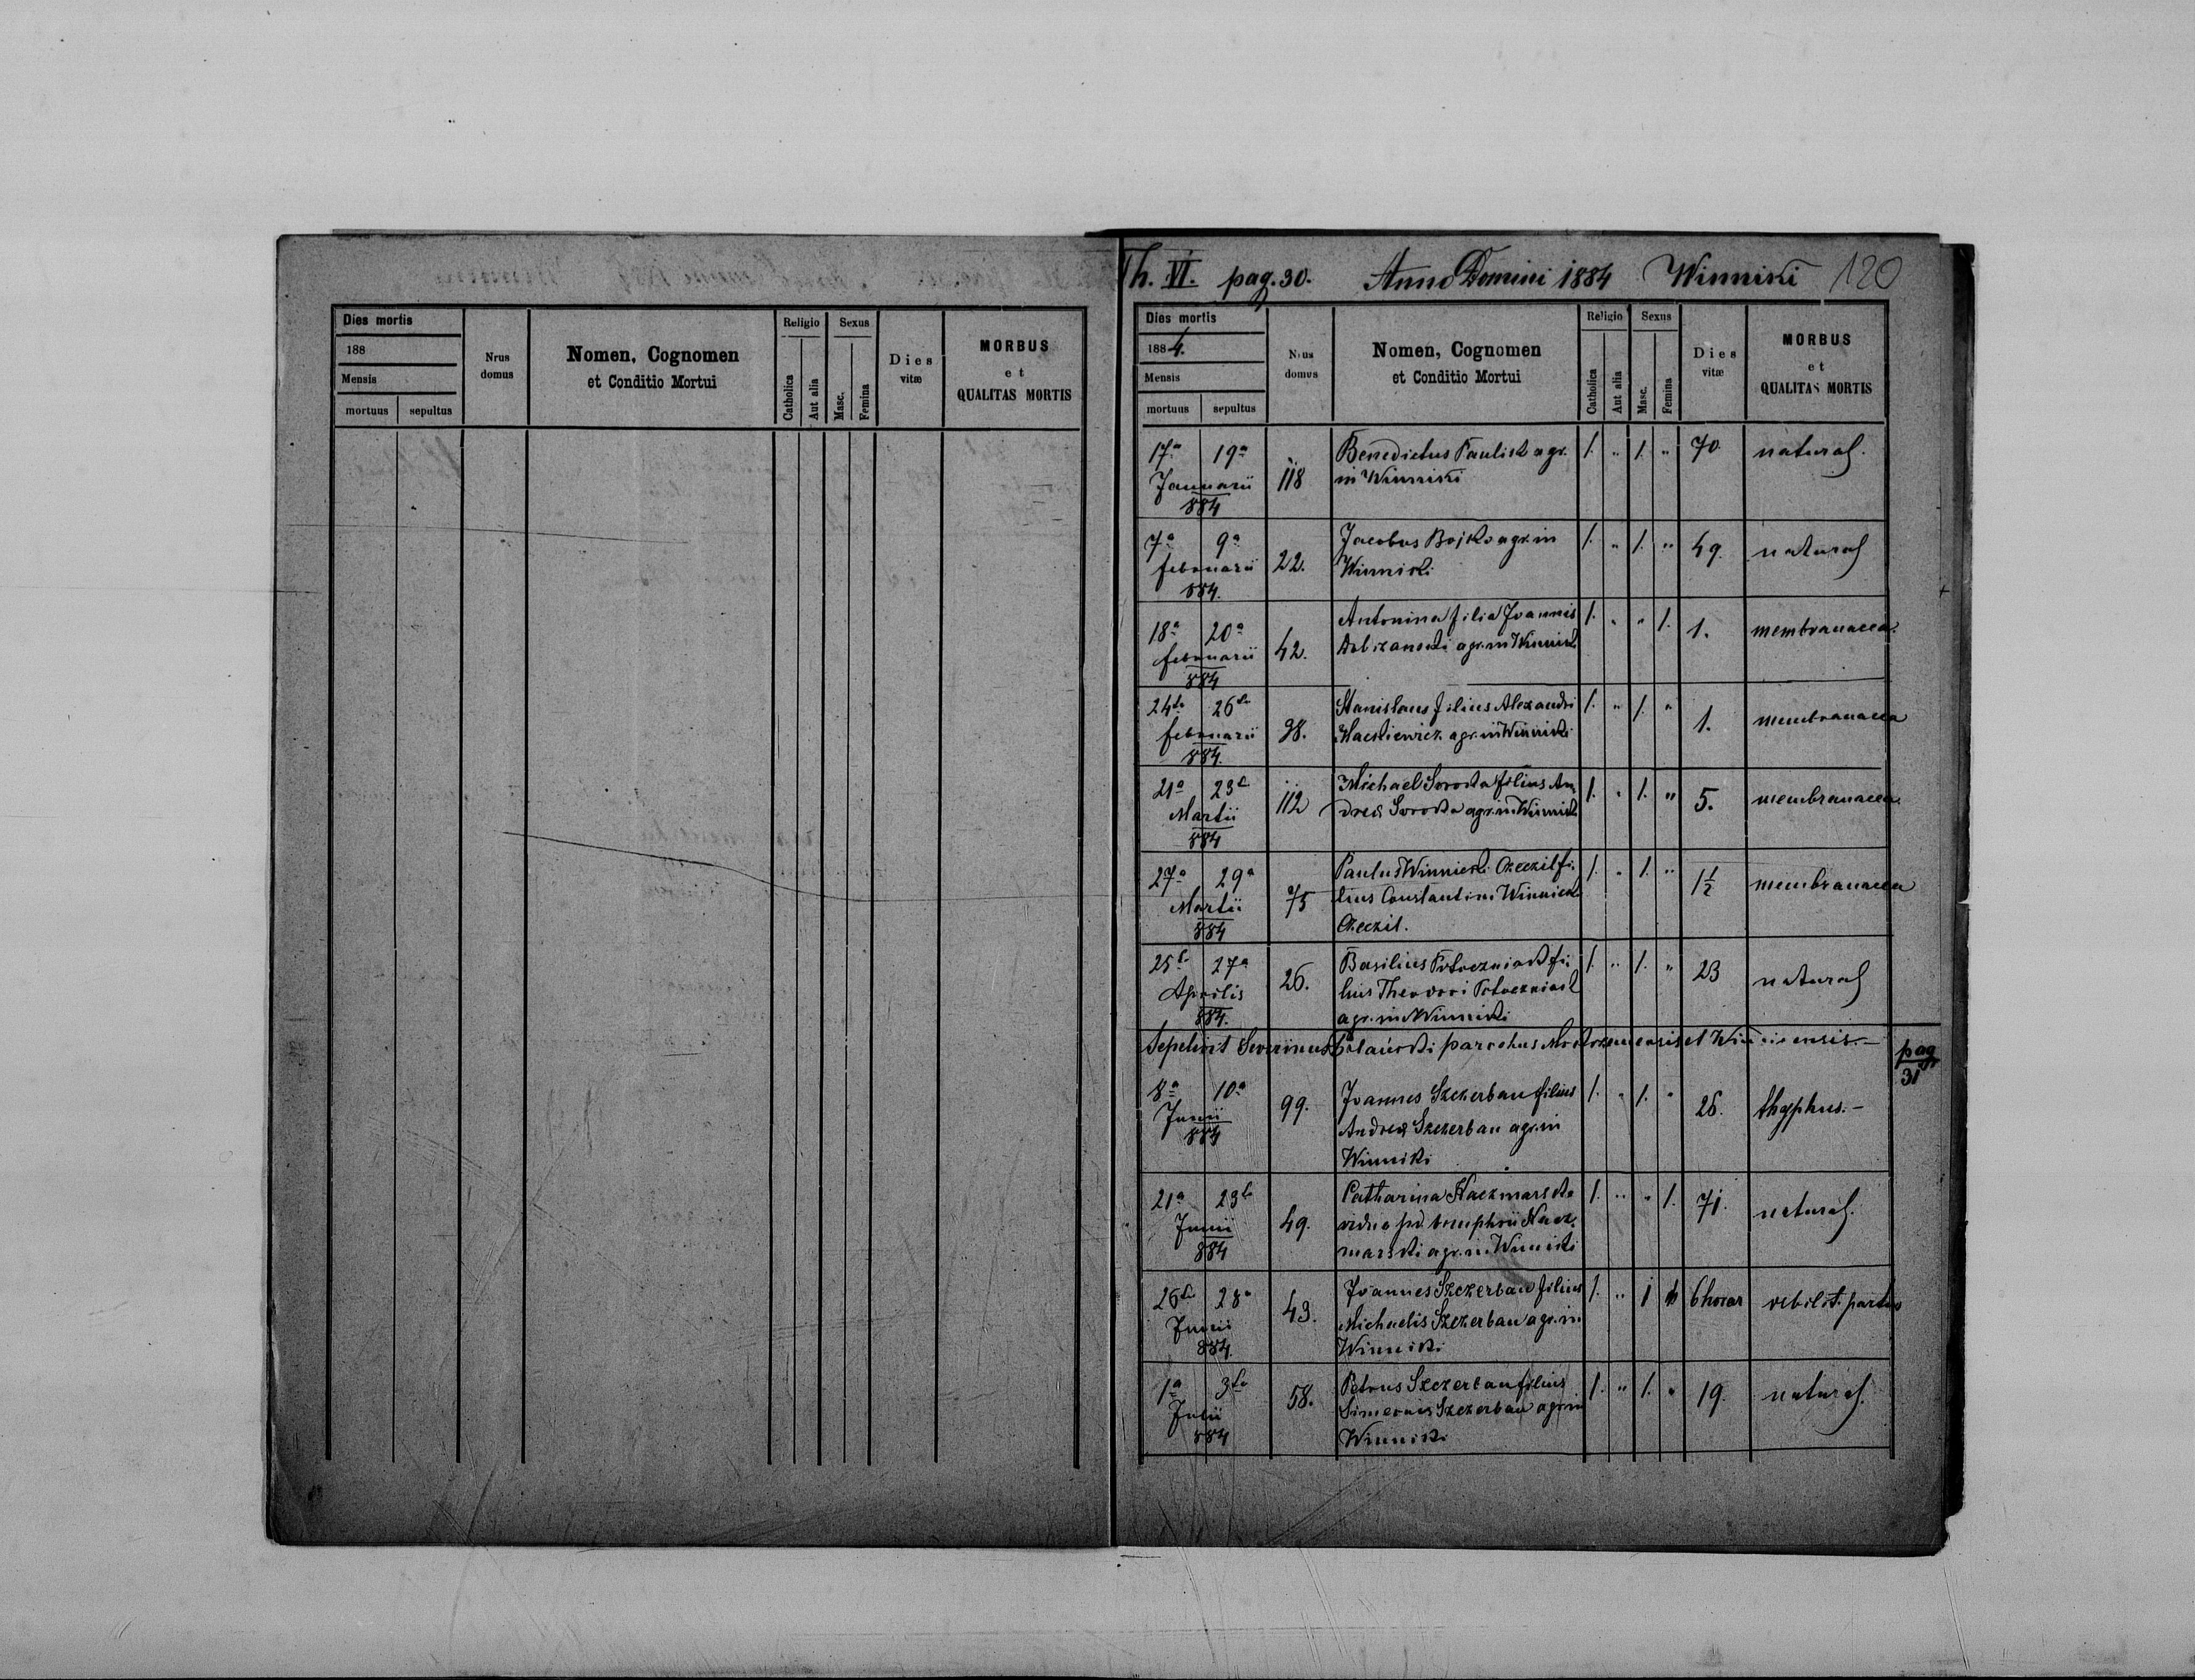 Dies mortis
188
Mensis
mortuus sepultus
Nrus
domus
Nomen, Cognomen
et Conditio Mortui
Religio
Catholica
Aut alia
Sexus
Masc.
Femina
Dies
vitæ
MORBUS
et
QUALITAS MORTIS
Th. VI. pag. 30. Anno Domini 1884 Winniki 120
Dies mortis
1884.
Mensis
mortuus sepultus
Nrus
domus
Nomen, Cognomen
et Conditio Mortui
Religio
Catholica
Aut alia
Sexus
Masc.
Femina
Dies
vitæ
MORBUS
et
QUALITAS MORTIS
17a 19a
Januarii
884
118
Benedictus Paulik agr.
in Winniki
1. " 1. " 70 natural.
7a 9a
februarii
884.
22.
Jacobus Bojko agr. in
Winniki
1. " 1. " 49. natural
18a 20a
februarii
884
42.
Antonina filia Joannis
agr. in Winnik
1. " " 1. 1. membranacea.
24ta 26ta
februarii
884.
98.
Stanislaus filius Alexandri
agr. in Winniki
1. " 1. " 1. membranacea
21a 23a
Martii
884
112
Michael Soroka filius An
dreæ Soroka agr. in Winnik
1. " 1. " 5. membranacea.
27a 29a
Martii
884
75
Paulus Winnicki Czeczil fi
lius Constantini Winnick
Czeczil.
1. " 1. " 1½ membranacea
25ta 27a
Aprilis
884.
26.
Basilius fi
lius Theodori
agr. in Winniki
1. " 1. " 23 natural
Sepelivit Severinus parochus et
pag
31
8a 10a
Junii
884
99.
Joannes Szczerban filius
Andreæ Szczerban agr. in
Winniki
1. " 1. " 26. thyphus.-
21a 23ta
Junii
884
49.
Catharina Kaczmarska
vidua Kacz
marski agr. in Winniki
1. " " 1. 71. natural.
26ta 28a
Junii
884.
43.
Joannes Szczerban filius
Michaelis Szczerban agr. in
Winniki
1. " 1 6 horar debilit. partus
1a 3ta
Julii
884
58.
Petrus Szczerban filius
Simeonis Szczerban agr. in
Winniki
1. " 1. " 19. natural.